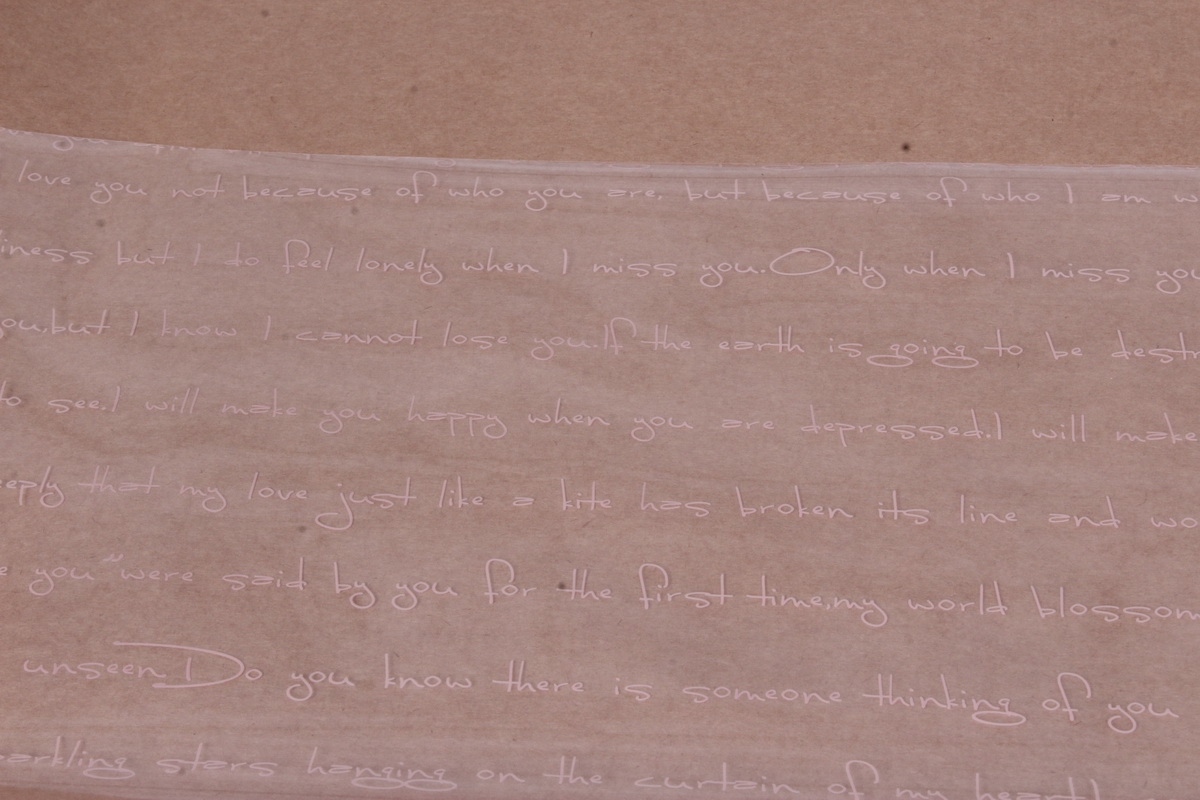 love you not because of who you are, but because of who I am w
iness but I do feel lonely when I miss you.Only when I miss you
ou,but I know I cannot lose you.If the earth is going to be destr
to see.I will make you happy when you are depressed.I will make
eply that my love just like a kite has broken its line and wo
e you" were said by you for the first time,my world blossom
unseen.Do you know there is someone thinking of you
arkling stars hanging on the curtain of my heart!